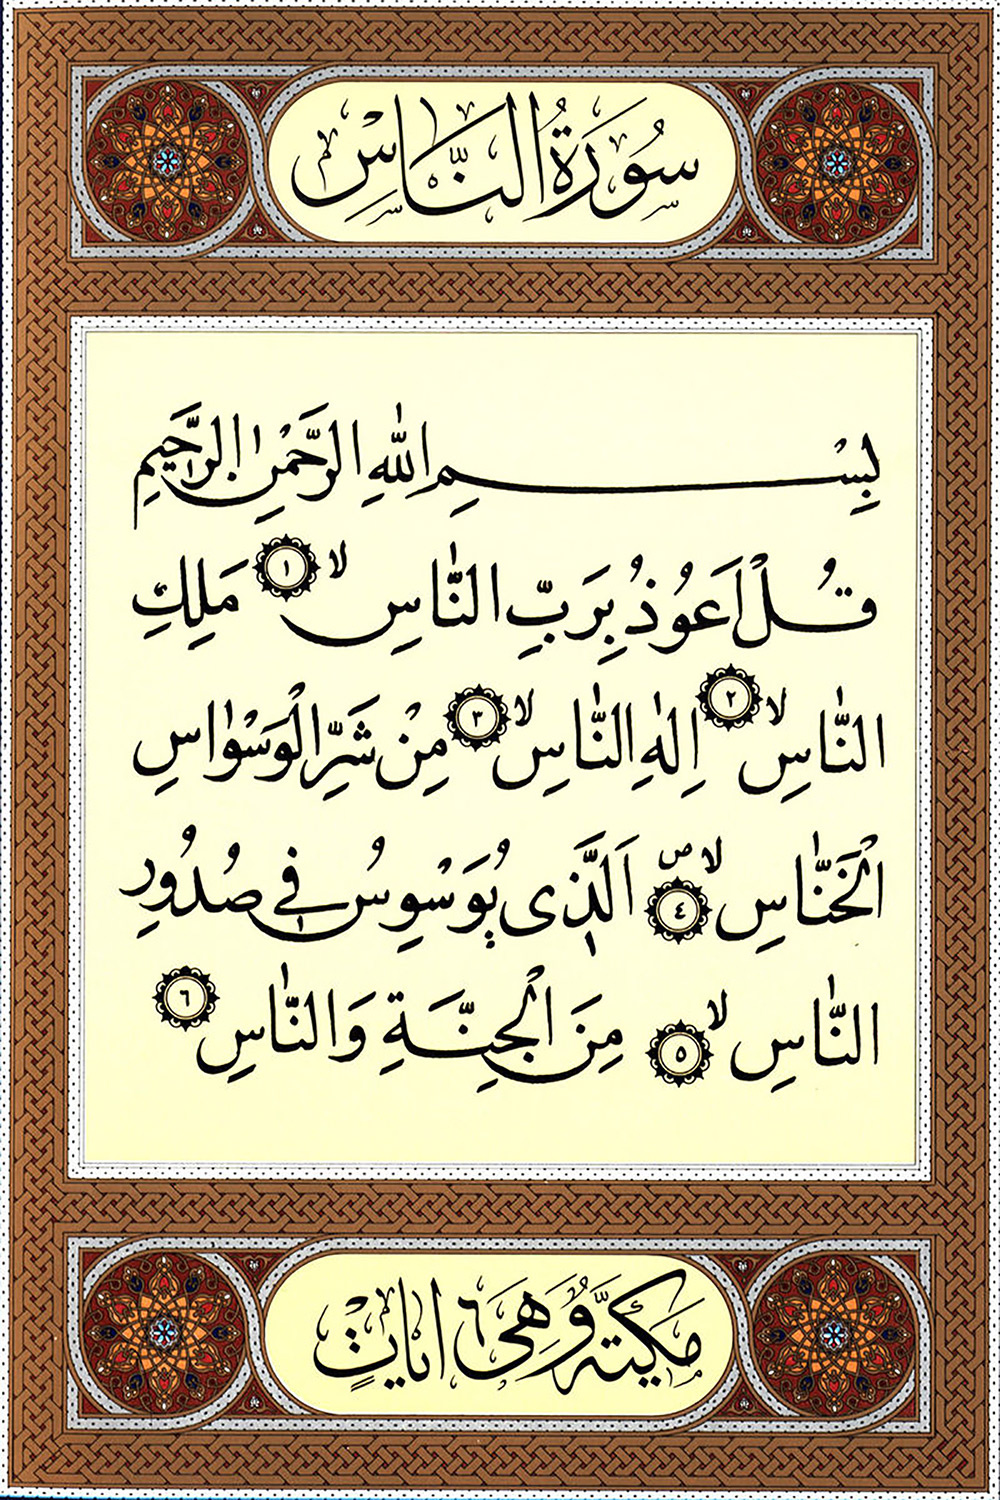 سُورَةُ النَّاسِ
بِسْمِ اللّٰهِ الرَّحْمٰنِ الرَّحِيمِ
قُلْ اَعُوذُ بِرَبِّ النَّاسِۙ ١ مَلِكِ
النَّاسِۙ ٢ اِلٰهِ النَّاسِۙ ٣ مِنْ شَرِّ الْوَسْوَاسِ
الْخَنَّاسِۙۖ ٤ اَلَّذ۪ى يُوَسْوِسُ ف۪ى صُدُورِ
النَّاسِۙ ٥ مِنَ الْجِنَّةِ وَالنَّاسِ ٦
مَكِّيَّة وَهِىَ ٦ اٰيَاتٍ